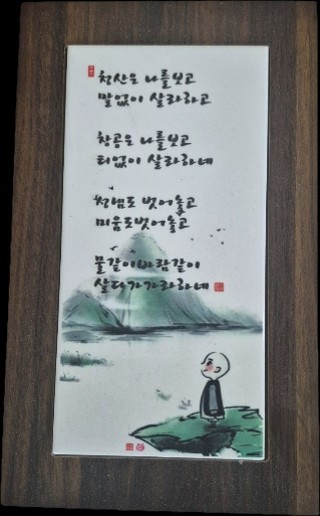 청산은 나를보고
말없이 살라하고
창공은 나를보고
티없이 살라하네
벗어놓고
미움도벗어놓고
물같이바람같이
살다가가라하네